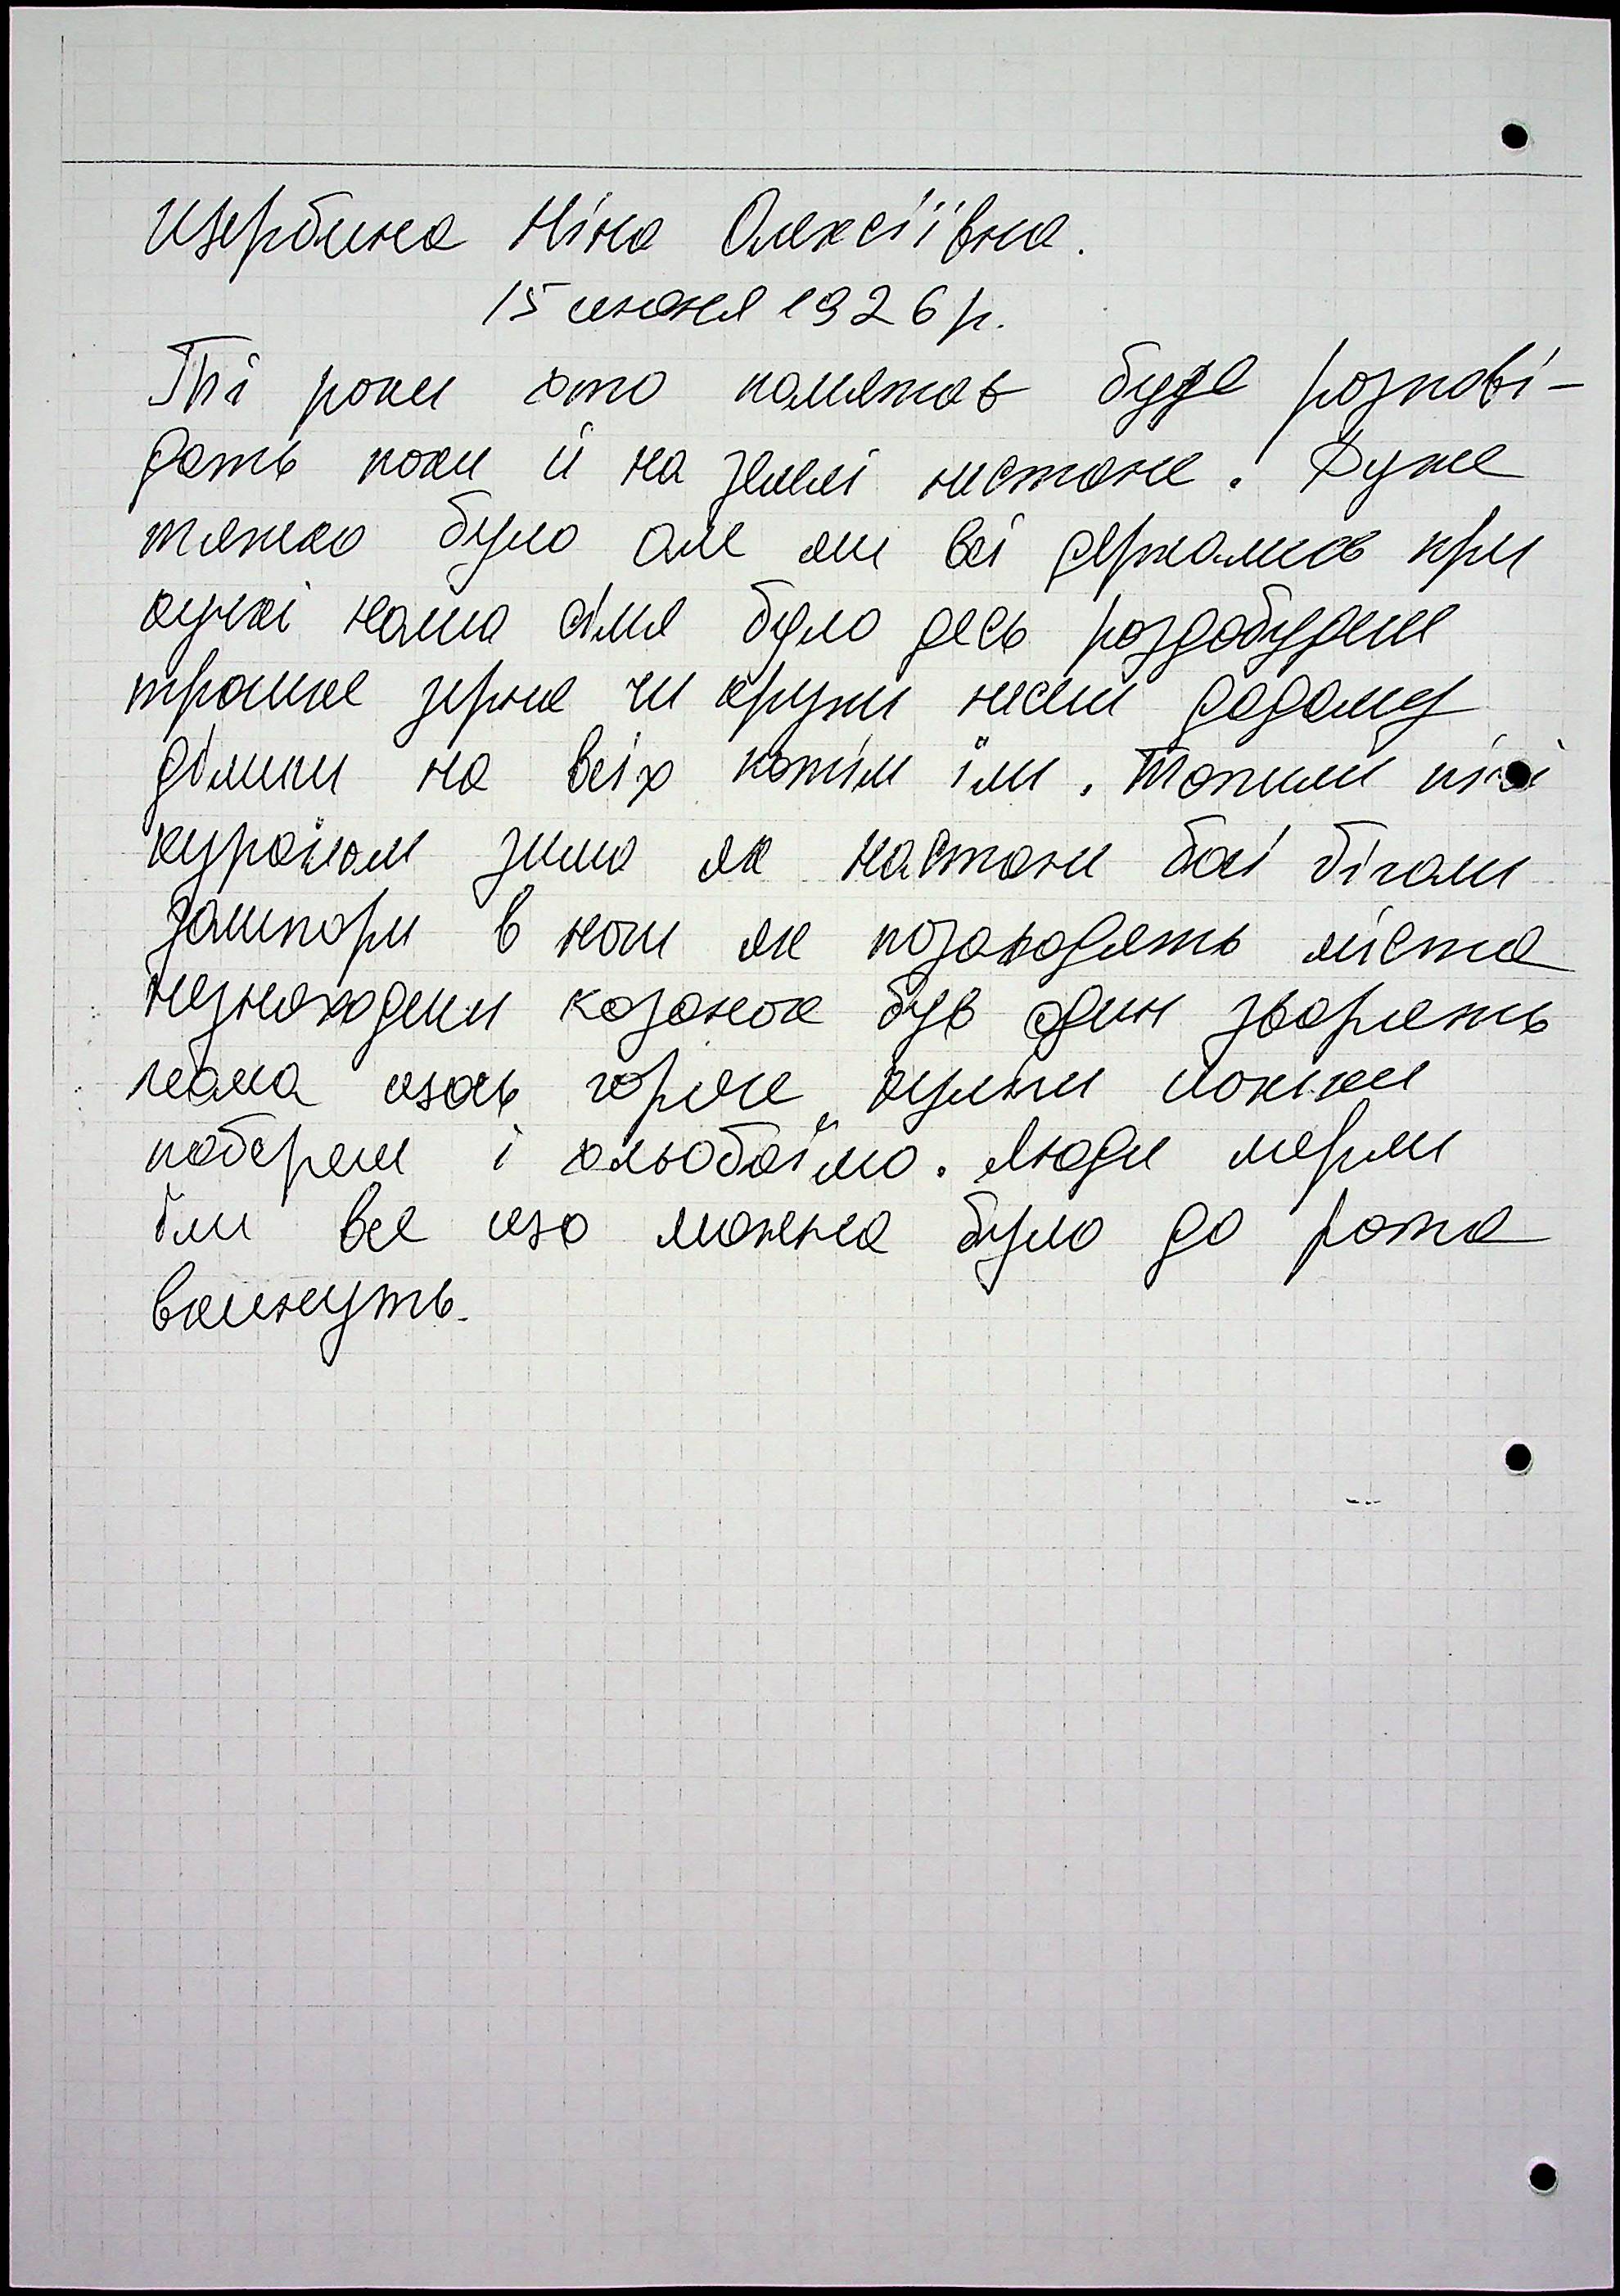 Щербина Ніна Олексіївна.
15 июня 1926 р.
Ті роки хто помятає буде розпові-
дать поки й на землі нестане. Дуже
тяжко було але ми всі держались при
кучкі наша сімя було десь роздобудем
трошке зерна чи крупи несем додому
ділили на всіх потім їли. Топили пічі
кураїном зима як настане босі бігали
зашпори в ноги як позаходять міста
незнаходили козанок був один зварять
мама щось горяче кулаки ложки
поберем і хльобаїмо. Люди мерли
їли все що можна було до рота
вкинуть.